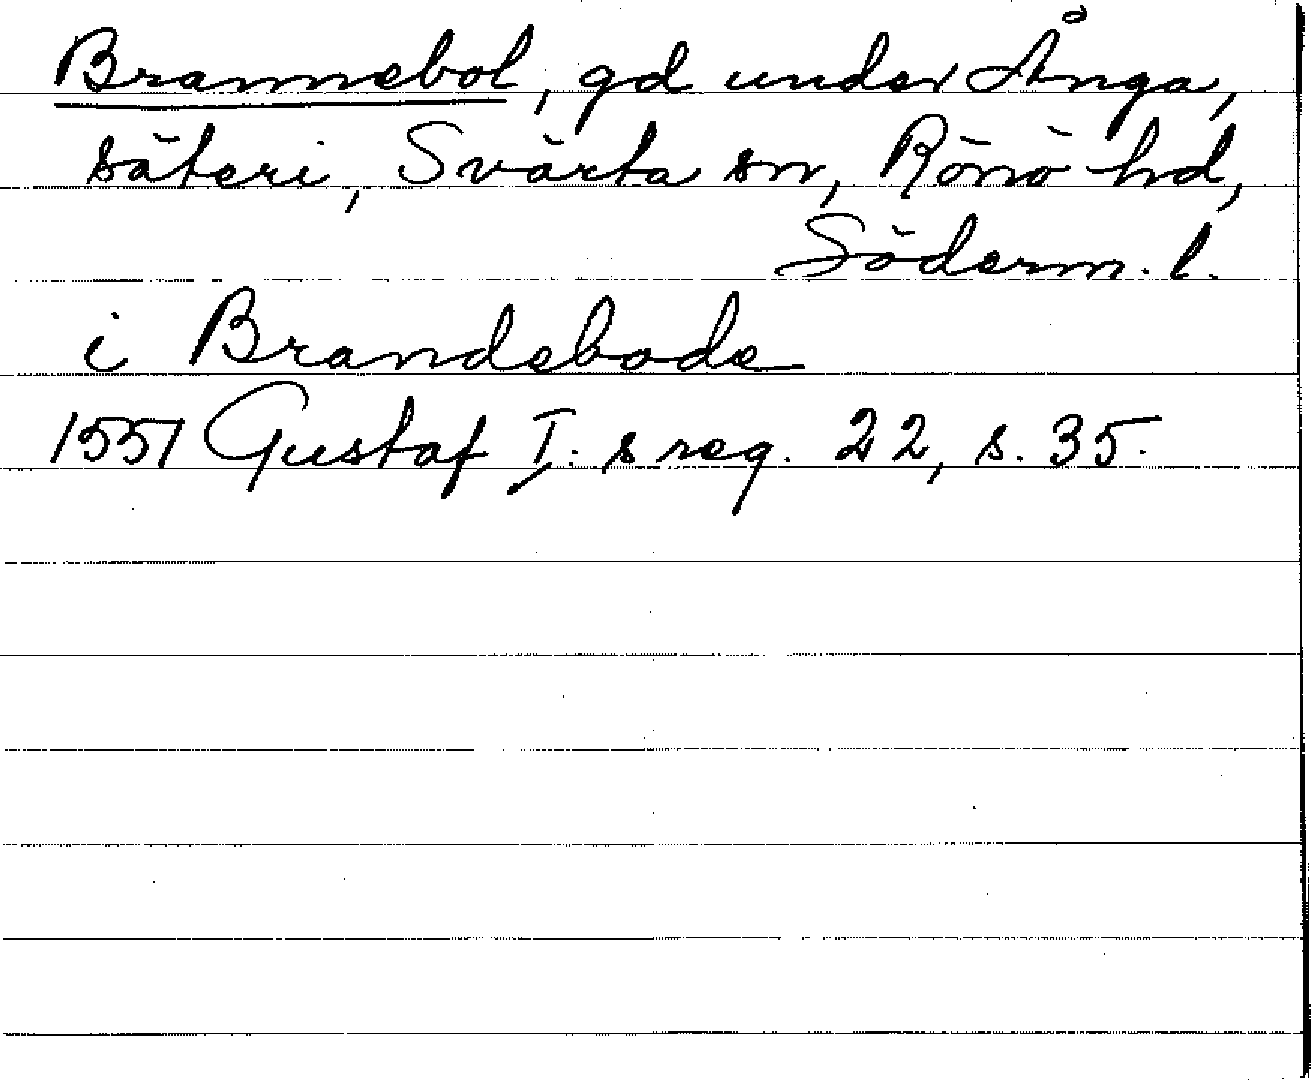 Brannebol, gd under Ånga,
säteri, Svärta sn, Rönö hd,
Söderm. l.
i Brandebode
1551 Gustaf I:s reg. 22, s. 35.